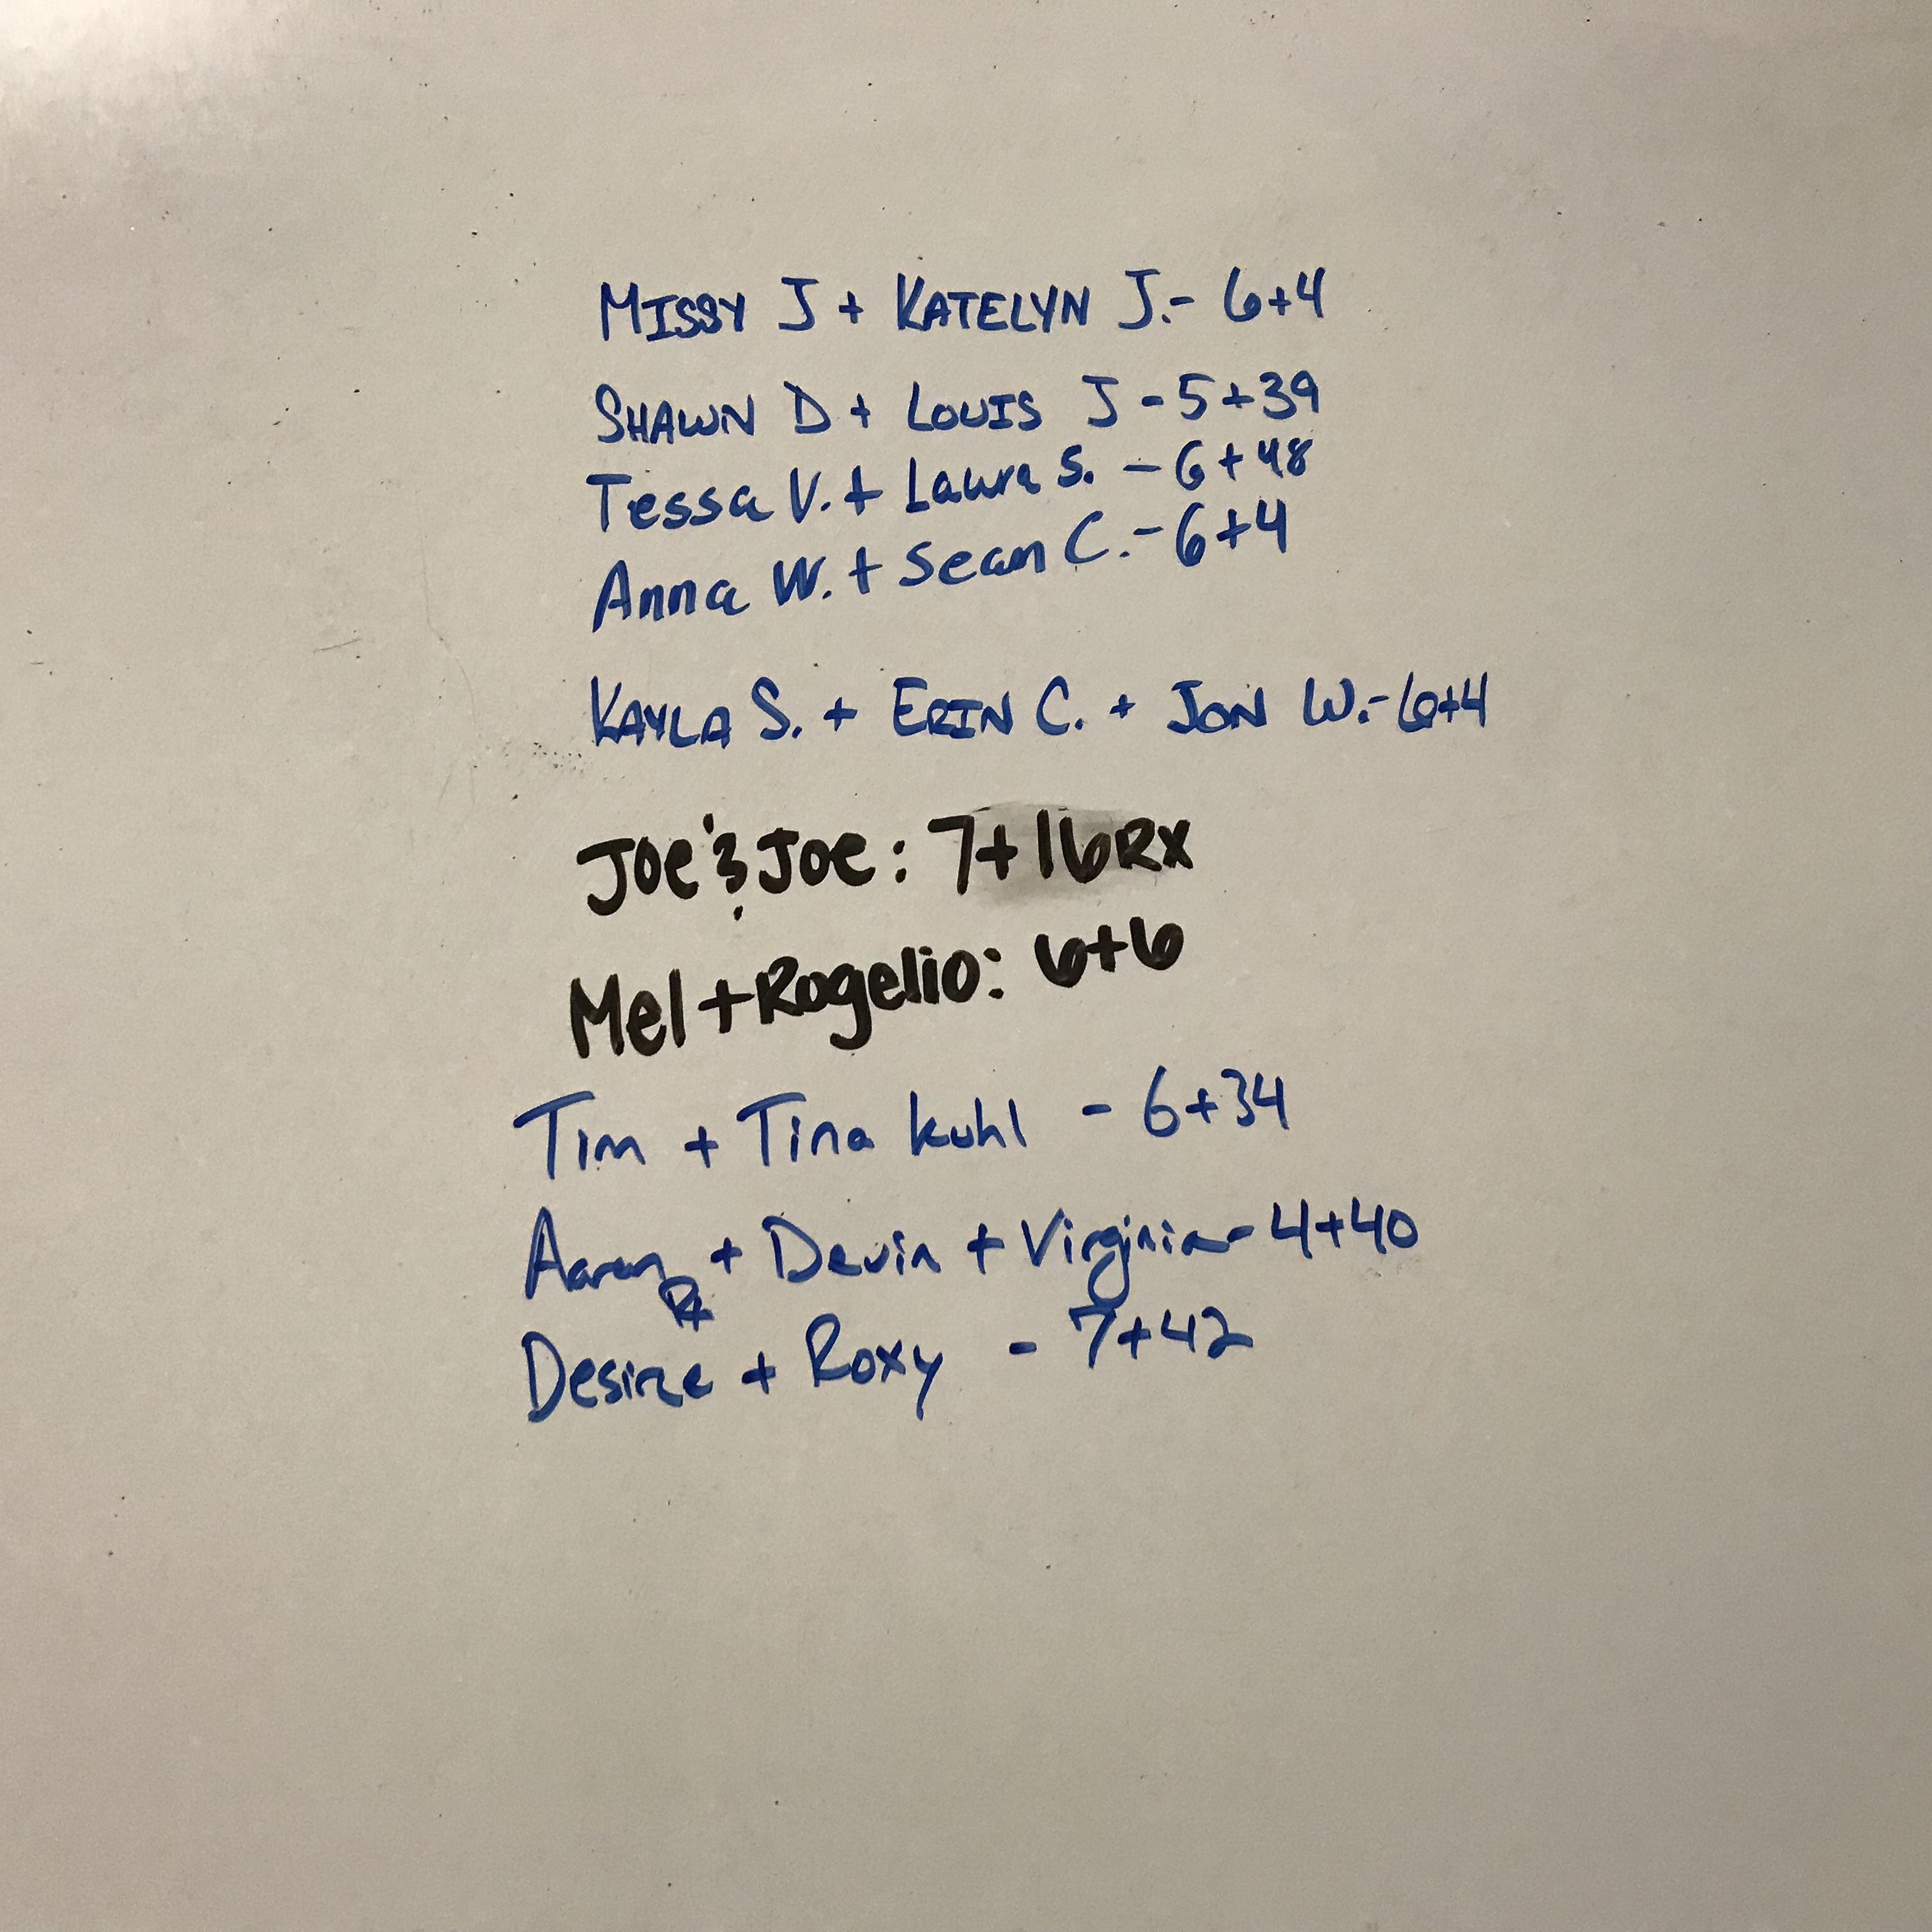 MISSY J + KATELYN J.- 6+4
SHAWN D + LOUIS J - 5+39
Tessa V. + Laura S. - 6+48
Anna W. + Sean C. - 6+4
KAYLA S. + ERIN C. + JON W.- 6+4
Joe & Joe: 7+16RX
Mel + Rogelio: 6+6
Tim + Tina Kuhl - 6+34
Aaron + Devin + Virginia - 4+40
Rx
Desire + Roxy - 7+42